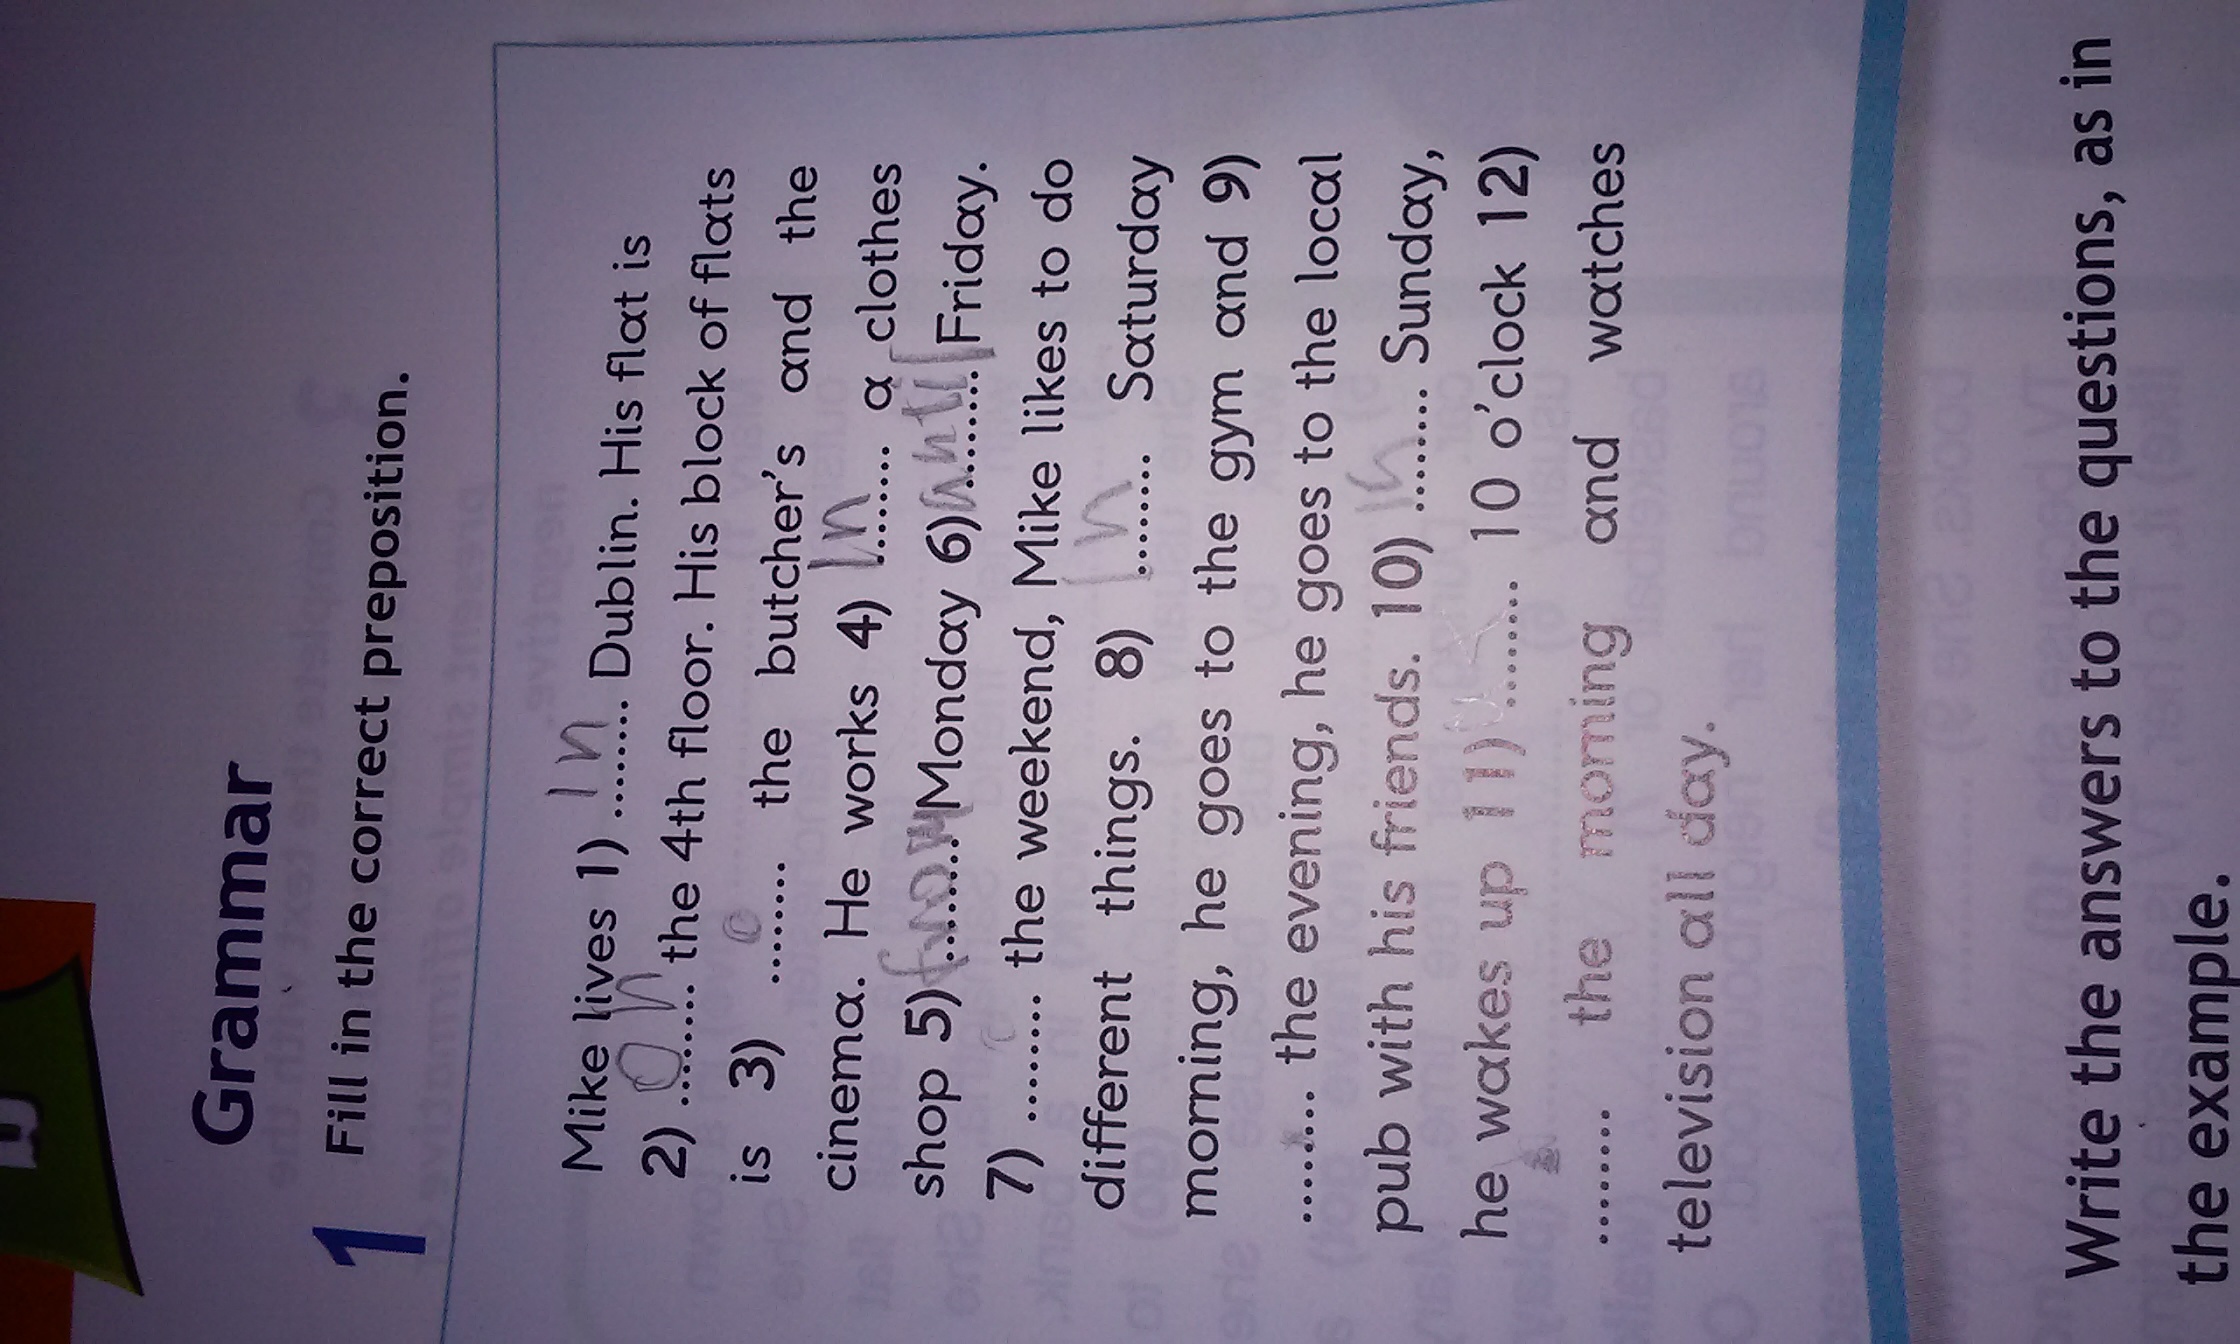 Grammar
1 Fill in the correct preposition.
Mike lives 1) In ......... Dublin. His flat is
2) On ........ the 4th floor. His block of flats
is 3) ........ the butcher's and the
cinema. He works 4) In ........ a clothes
shop 5) from ........ Monday 6) until ........ Friday.
7) ......... the weekend, Mike likes to do
different things. 8) In ........ Saturday
morning, he goes to the gym and 9)
........ the evening, he goes to the local
pub with his friends. 10) In ........ Sunday,
he wakes up 11) ........ 10 o'clock 12)
........ the morning and watches
television all day.
Write the answers to the questions, as in
the example.